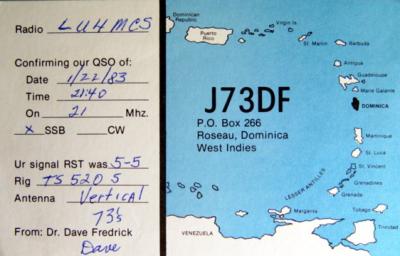 Radio LU4MCS
Confirming our QSO of:
Date 1/22/83
Time 21:40
On 21 Mhz.
x SSB CW
Ur signal RST was 5-5
Rig TS 520 S
Antenna Vertical
73's
From: Dr. Dave Fredrick
Dave
J73DF
P.O. Box 266
Roseau, Dominica
West Indies
Dominican
Republic
Puerto
Rico
Virgin Is.
St. Martin
Barbuda
Antigua
Guadeloupe
Marie Galante
DOMINICA
Martinique
St. Lucia
St. Vincent
Grenadines
Grenada
LESSER ANTILLES
Margarita
Tobago
Trinidad
VENEZUELA